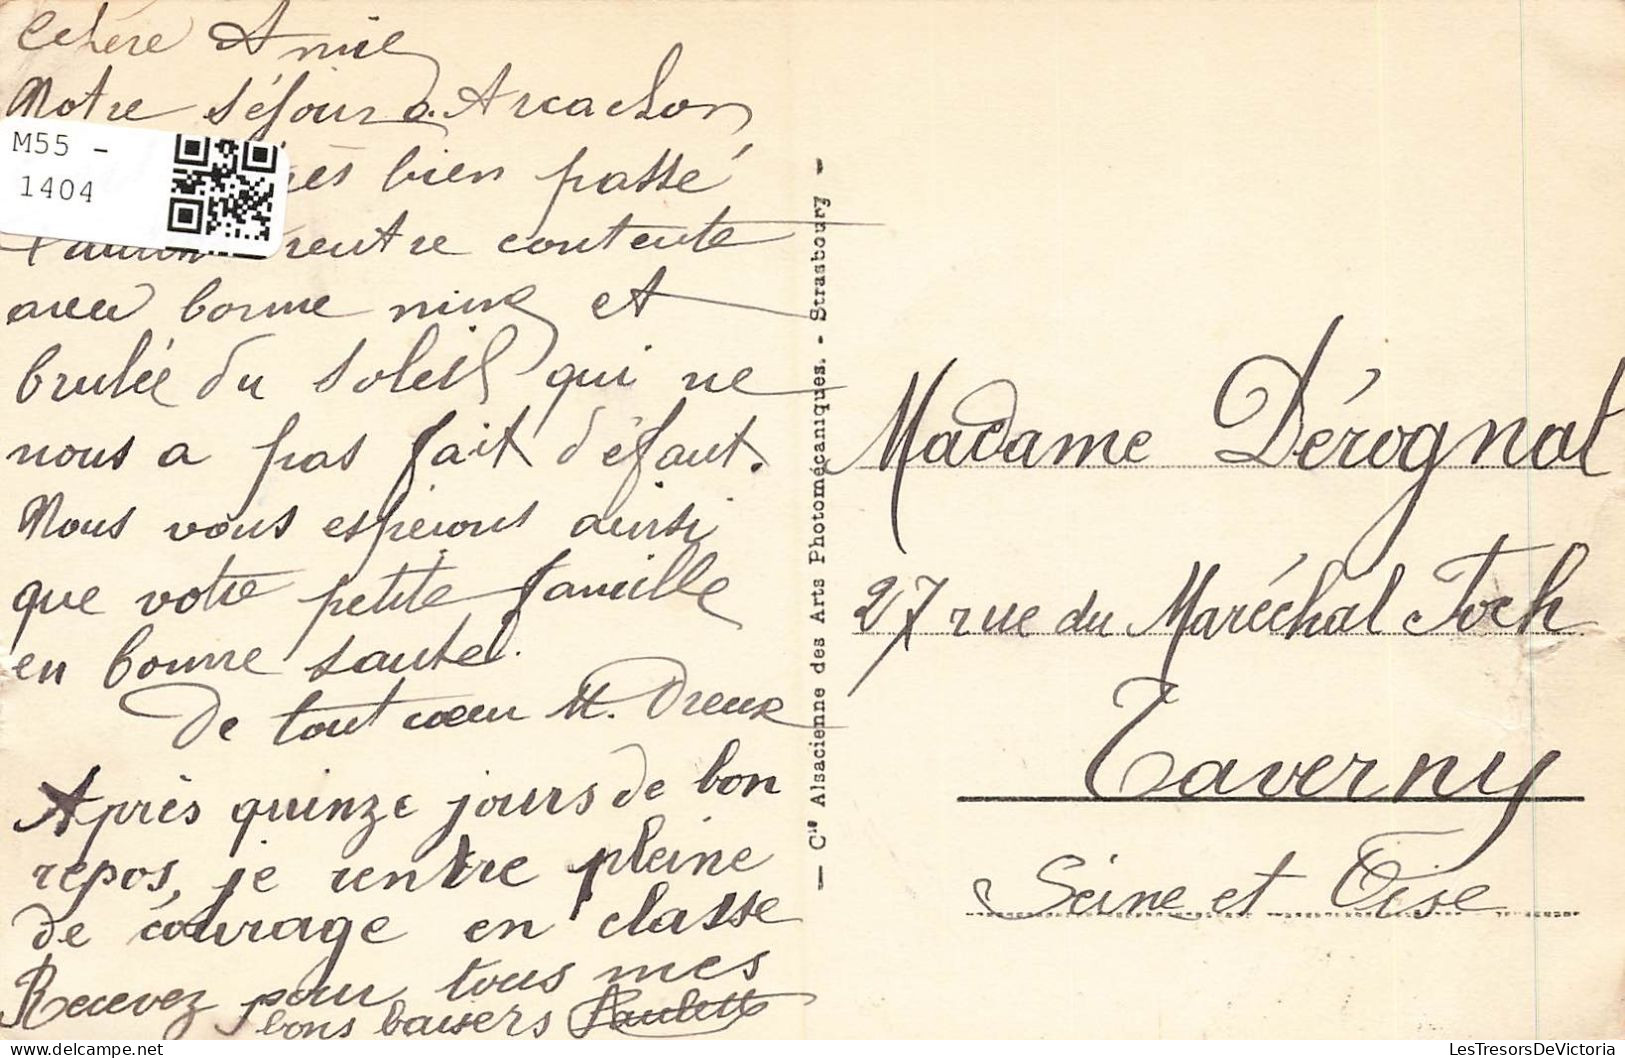 Chère Amie
Notre séjour à Arcachon
M55 -
1404
très bien passé
rentre contente
avec bonne mine et
brulée du soleil qui ne
nous a pas fait défaut.
Nous vous espérons ainsi
que votre petite famille
en bonne santé.
De tout cœur M. Dreux
Après quinze jours de bon
repos, je rentre pleine
de courage en classe
Recevez pour tous mes
bons baisers Paulette
— Cie Alsacienne des Arts Photomécaniques. - Strasbourg —
Madame Dérognat
27 rue du Maréchal Foch
Taverny
Seine et Oise
LesTresorsDeVictoria